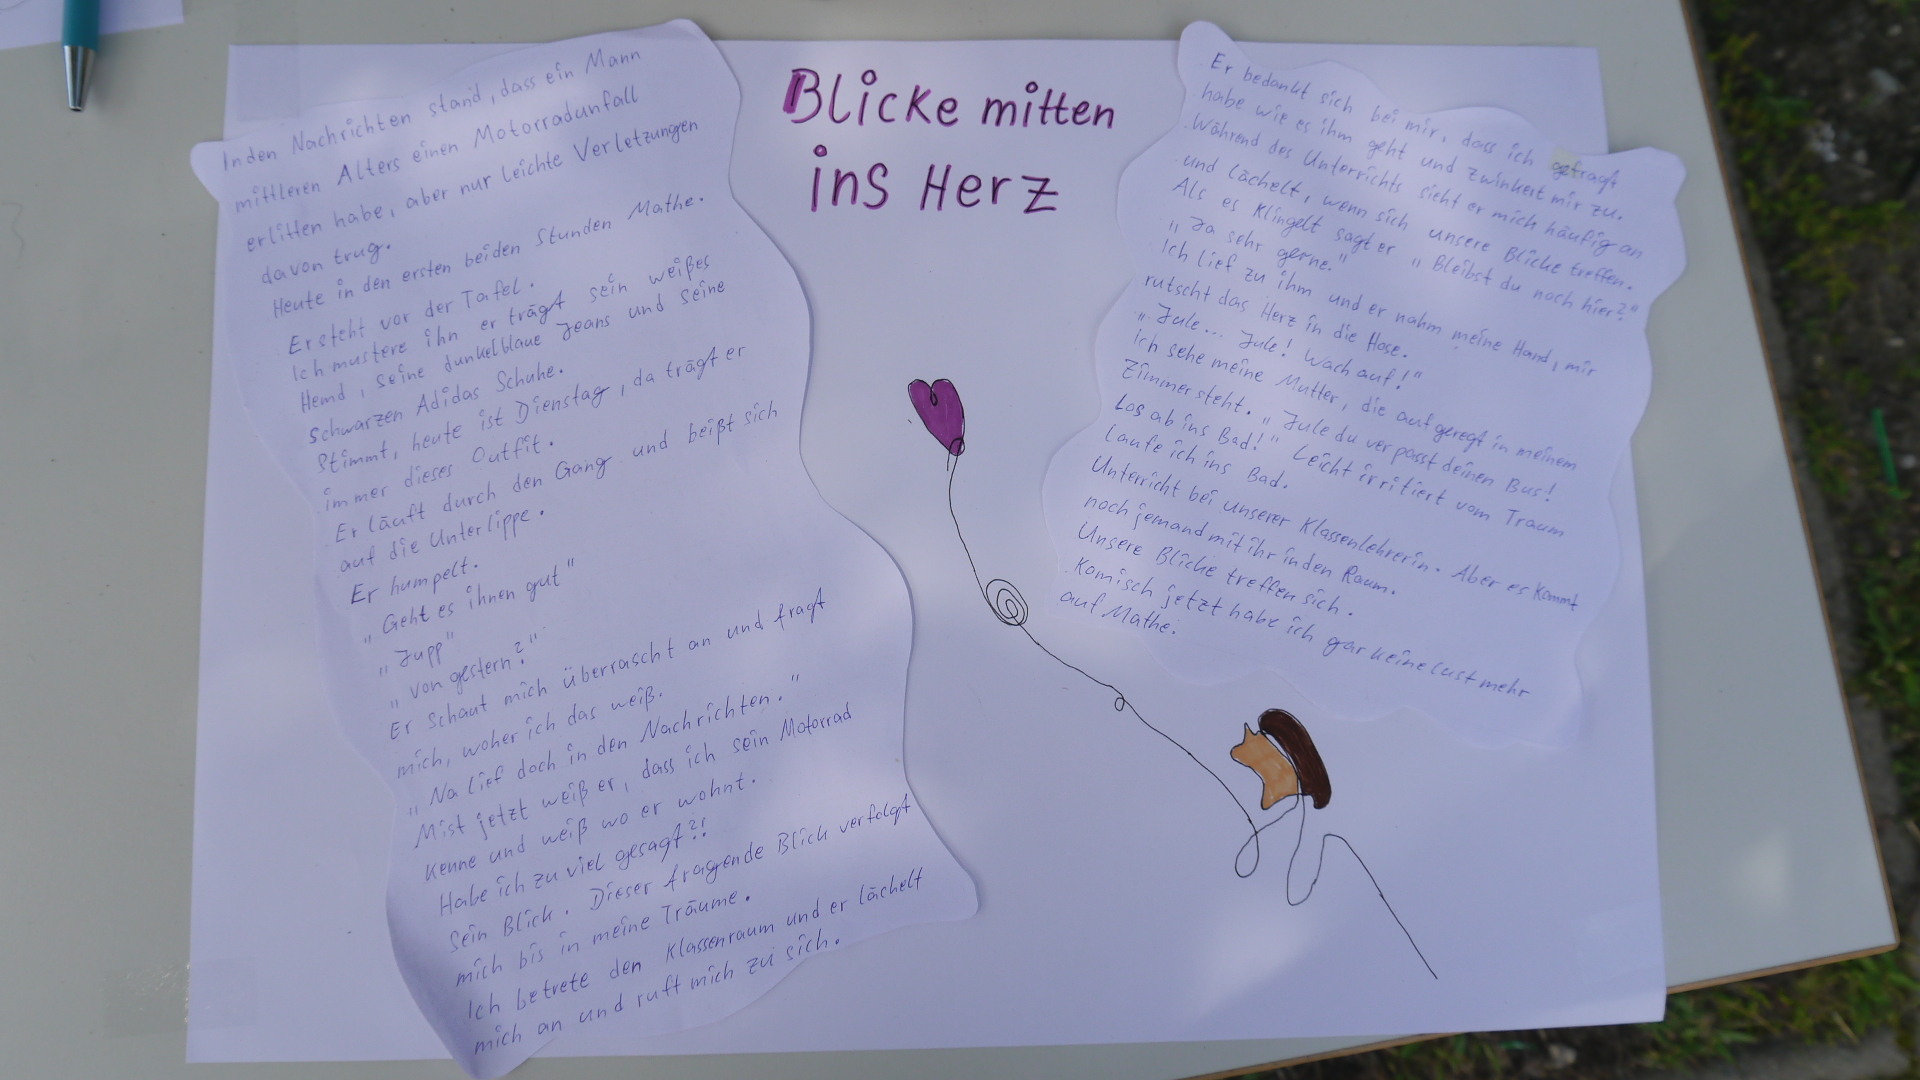 Blicke mitten
ins Herz
In den Nachrichten stand, dass ein Mann
mittleren Alters einen Motorradunfall
erlitten habe, aber nur leichte Verletzungen
davon trug.
Heute in den ersten beiden Stunden Mathe.
Er steht vor der Tafel.
Ich mustere ihn er trägt sein weißes
Hemd, seine dunkelblaue Jeans und seine
schwarzen Adidas Schuhe.
Stimmt, heute ist Dienstag, da trägt er
immer dieses Outfit.
Er läuft durch den Gang und beißt sich
auf die Unterlippe.
Er humpelt.
„Geht es ihnen gut"
„Jupp"
„Von gestern?"
Er schaut mich überrascht an und fragt
mich, woher ich das weiß.
„Na lief doch in den Nachrichten."
Mist jetzt weiß er, dass ich sein Motorrad
kenne und weiß wo er wohnt.
Habe ich zu viel gesagt?!
Sein Blick. Dieser fragende Blick verfolgt
mich bis in meine Träume.
Ich betrete den Klassenraum und er lächelt
mich an und ruft mich zu sich.
Er bedankt sich bei mir, dass ich gefragt
habe wie es ihm geht und zwinkert mir zu.
Während des Unterrichts sieht er mich häufig an
und lächelt, wenn sich unsere Blicke treffen.
Als es klingelt sagt er „Bleibst du noch hier?"
„Ja sehr gerne."
Ich lief zu ihm und er nahm meine Hand, mir
rutscht das Herz in die Hose.
„Jule... Jule! Wach auf!"
Ich sehe meine Mutter, die aufgeregt in meinem
Zimmer steht. „Jule du verpasst deinen Bus!
Los ab ins Bad!" Leicht irritiert vom Traum
laufe ich ins Bad.
Unterricht bei unserer Klassenlehrerin. Aber es kommt
noch jemand mit ihr in den Raum.
Unsere Blicke treffen sich.
Komisch jetzt habe ich gar keine Lust mehr
auf Mathe.